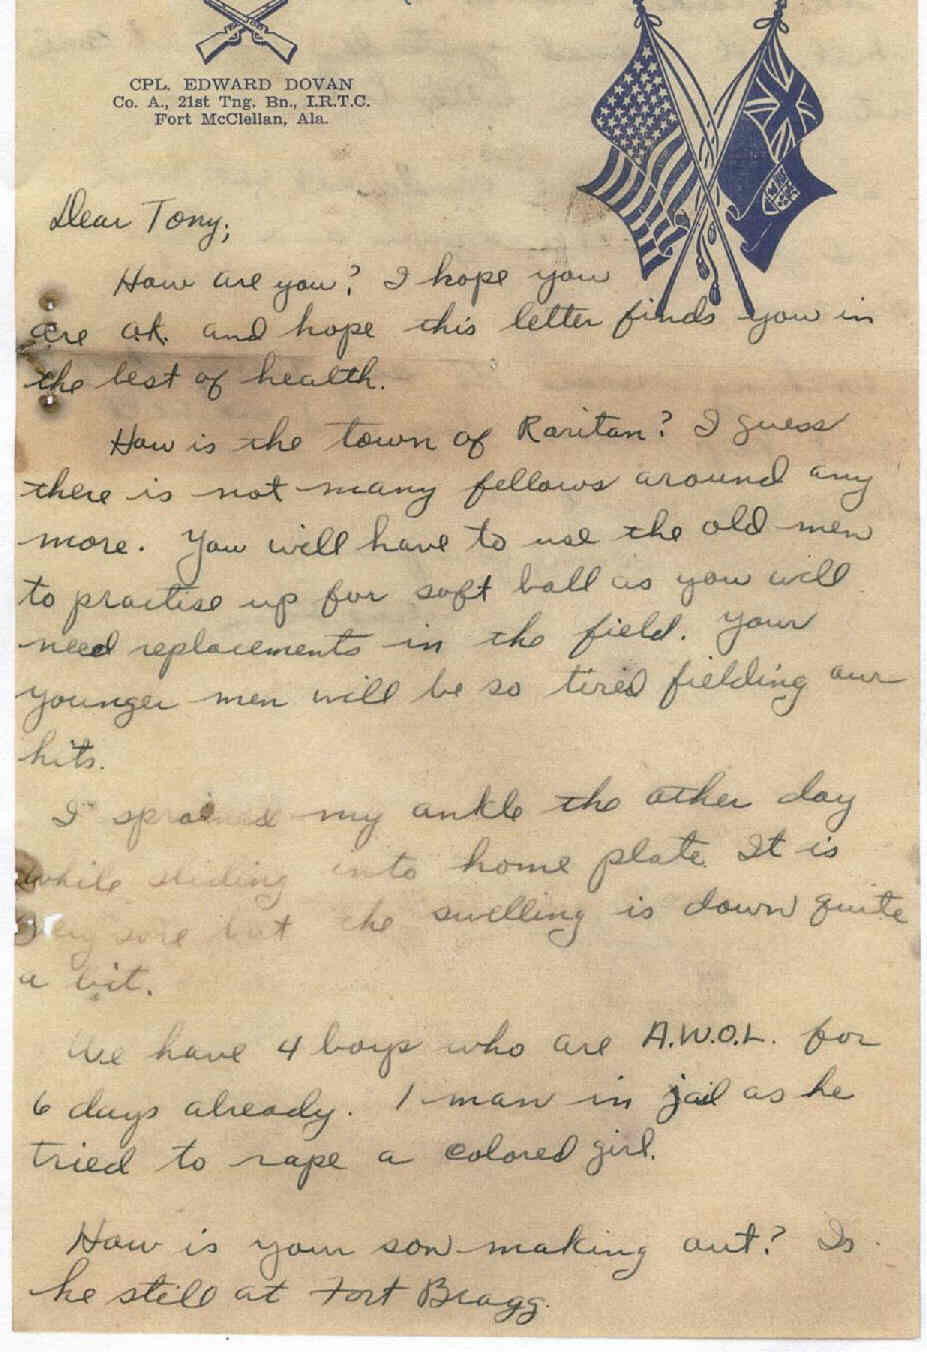 CPL. EDWARD DOVAN
Co. A., 21st Tng. Bn., I.R.T.C.
Fort McClellan, Ala.
Dear Tony;
How are you? I hope you
are o.k. and hope this letter finds you in
the best of health.
How is the town of Raritan? I guess
there is not many fellows around any
more. You will have to use the old men
to practise up for soft ball as you will
need replacements in the field. Your
younger men will be so tired fielding our
hits.
I sprained my ankle the other day
while sliding into home plate. It is
very sore but the swelling is down quite
a bit.
We have 4 boys who are A.W.O.L. for
6 days already. 1 man in jail as he
tried to rape a colored girl.
How is your son making out? Is
he still at Fort Bragg.